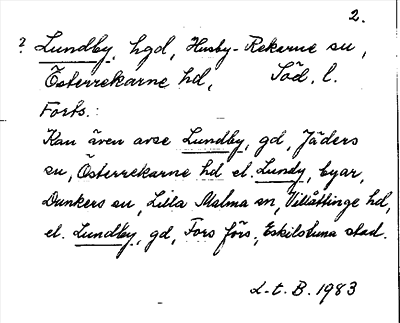 2.
? Lundby, hgd, Husby-Rekarne sn,
Österrekarne hd, Söd. l.
Forts.:
Kan även avse Lundby, gd, Jäders
sn, Österrekarne hd el. Lundy, byar,
Dunkers sn, Lilla Malma sn, Villåttinge hd,
el. Lundby, gd, Fors förs., Eskilstuna stad.
L-t. B. 1983